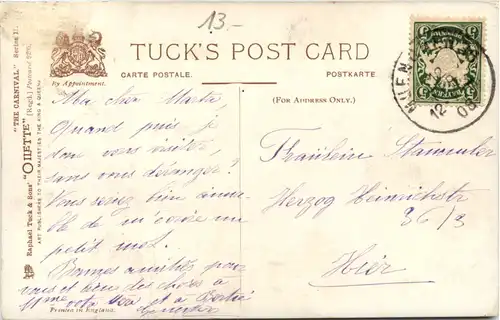 13.-
TUCK'S POST CARD
CARTE POSTALE.
POSTKARTE
By Appointment.
(FOR ADDRESS ONLY.)
Raphael Tuck & Sons' "OILETTE" "THE CARNIVAL" Series II.
[Regd.] Postcard
ART PUBLISHERS TO THEIR MAJESTIES THE KING & QUEEN.
BAYERN
5 5
MUENCHEN
12
06
Ma chère
Quand puis je
donc vous visiter,
sans vous déranger?
Vous seriez bien aima-
ble de m'écrire une
petit mot!
Bonnes amitiés pour
vous et bien des choses à
Mme et à
Fräulein Stammler
Herzog Heinrichstr
36/3
Hier
Printed in England.